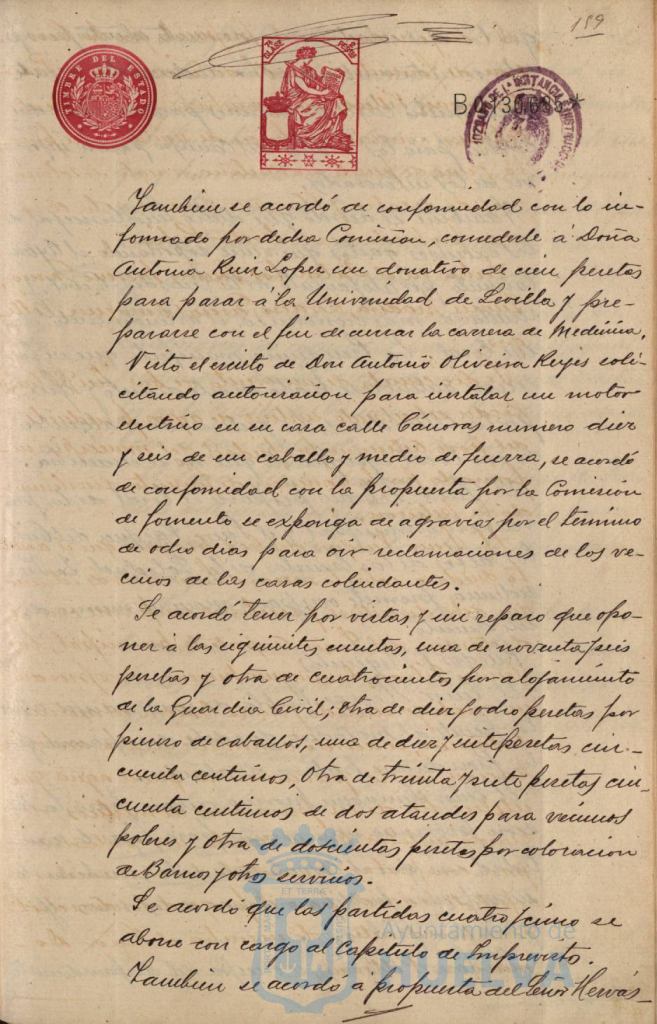 159
TIMBRE DEL ESTADO
7ª CLASE
PESETAS
B.0.130.695*
JUZGADO DE 1ª INSTANCIA INSTRUCCION
Tambien se acordó de conformidad con lo in-
formado por dicha Comisión, concederle á Doña
Antonia Ruiz Lopez un donativo de cien pesetas
para pasar á la Universidad de Sevilla y pre-
pararse con el fin de cursar la carrera de Medicina.
Visto el escrito de Don Antonio Oliveira Reyes soli-
citando autorización para instalar un motor
electrico en su casa calle Cánovas numero diez
y seis de un caballo y medio de fuerza, se acordó
de conformidad con la propuesta por la Comisión
de fomento se exponga de agravios por el termino
de ocho dias para oir reclamaciones de los ve-
cinos de las casas colindantes.
Se acordó tener por vistas y sin reparo que opo-
ner á las siguientes cuentas, una de noventa y seis
pesetas y otra de cuatrocientas por alojamiento
de la Guardia Civil; otra de diez y ocho pesetas por
pienso de caballos, una de diez y siete pesetas cin-
cuenta centimos, otra de treinta y siete pesetas cin-
cuenta centimos de dos ataudes para vecinos
pobres y otra de doscientas pesetas por colocacion
de Bancos y otros servicios.
Se acordó que las partidas cuatro y cinco se
abone con cargo al Capitulo de Imprevistos.
Tambien se acordó á propuesta del Señor Hervás
ET TERRA
Ayuntamiento de
HUELVA